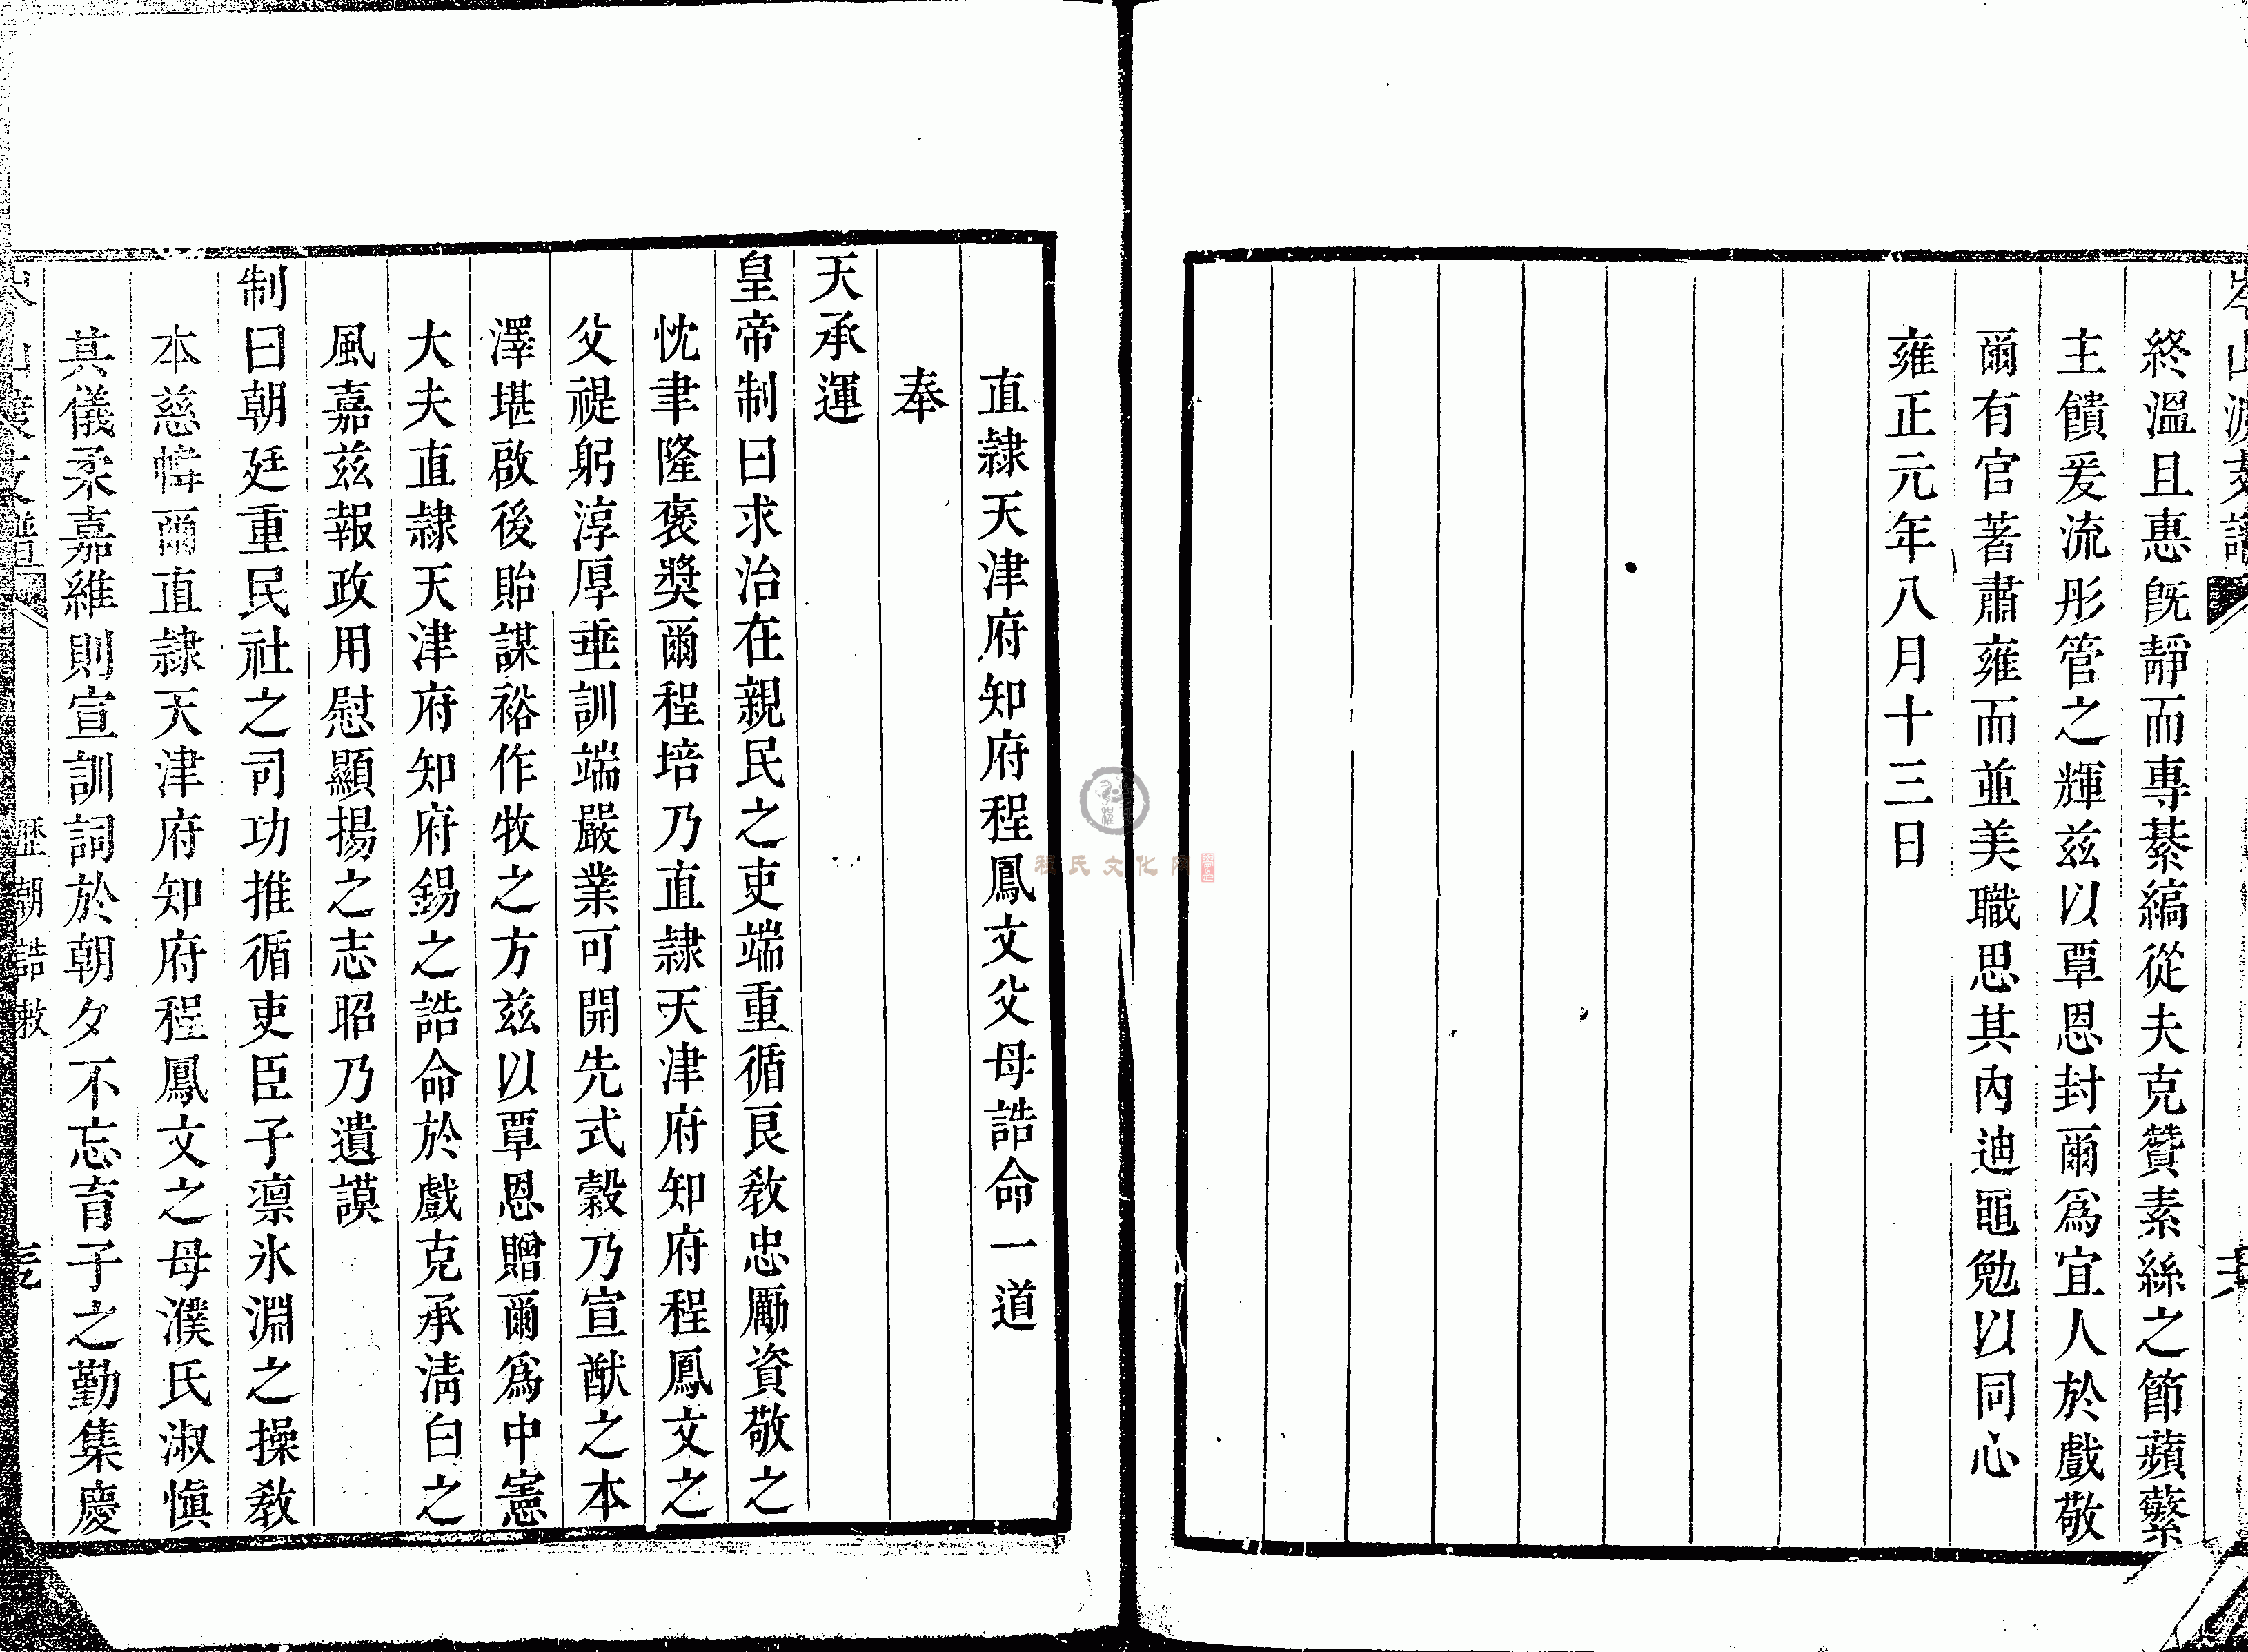 終溫且惠旣靜而專綦縞從夫克贊素絲之節蘋蘩
主饋爰流彤管之輝茲以覃恩封爾爲宜人於戲敬
爾有官著肅雍而並美職思其內迪黽勉以同心
雍正元年八月十三日
直隸天津府知府程鳳文父母誥命一道
奉
天承運
皇帝制曰求治在親民之吏端重循良敎忠勵資敬之
忱聿隆褒獎爾程培乃直隸天津府知府程鳳文之
父禔躬淳厚垂訓端嚴業可開先式穀乃宣猷之本
澤堪啟後貽謀裕作牧之方茲以覃恩贈爾爲中憲
大夫直隸天津府知府錫之誥命於戲克承淸白之
風嘉茲報政用慰顯揚之志昭乃遺謨
制曰朝廷重民社之司功推循吏臣子凛氷淵之操敎
本慈幃爾直隸天津府知府程鳳文之母濮氏淑愼
其儀柔嘉維則宣訓詞於朝夕不忘育子之勤集慶
歷朝誥敕
程氏文化网